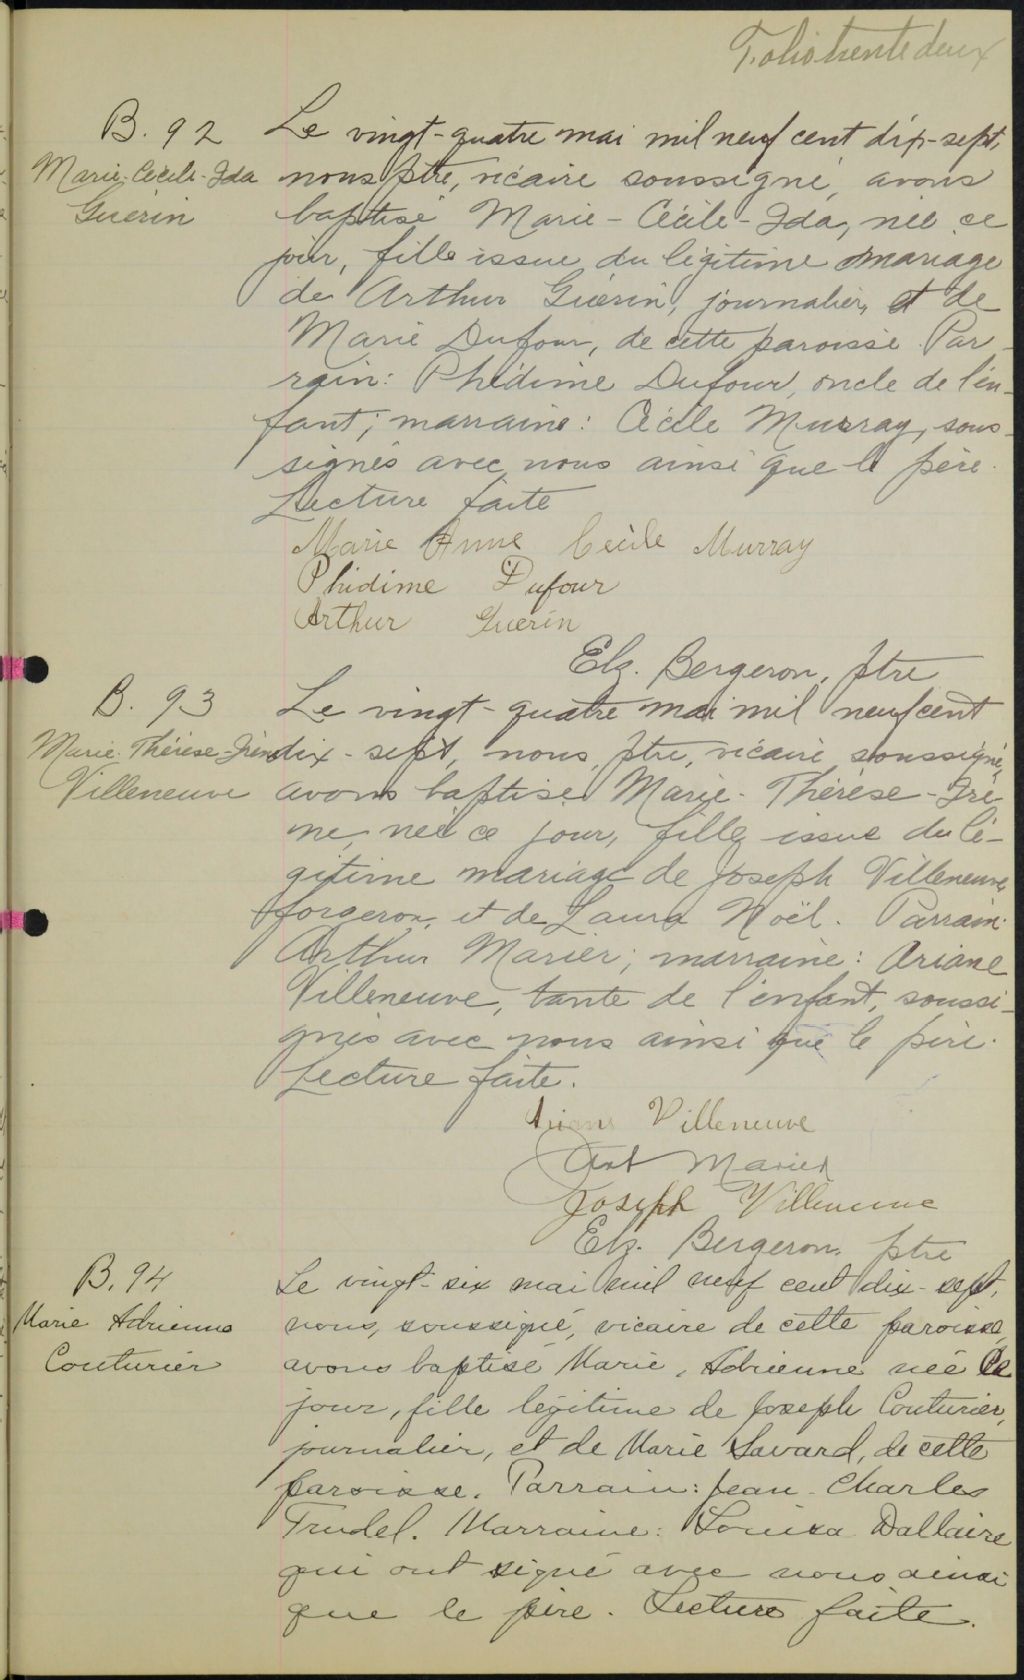 Folio trente deux
B. 92
Marie-Cécile-Ida
Guérin
Le vingt-quatre mai mil neuf cent dix-sept,
nous ptre, vicaire soussigné, avons
baptisé Marie-Cécile-Ida, née ce
jour, fille issue du légitime mariage
de Arthur Guérin, journalier, et de
Marie Dufour, de cette paroisse. Par-
rain: Phédime Dufour, oncle de l'en-
fant; marraine: Cécile Murray, sous-
signés avec nous ainsi que le père.
Lecture faite
Marie Anne Cecile Murray
Phidime Dufour
Arthur Guerin
Elz. Bergeron, ptre
B. 93
Marie-Thérèse-Irène
Villeneuve
Le vingt-quatre mai mil neuf cent
dix-sept, nous, ptre, vicaire soussigné,
avons baptisé Marie-Thérèse-Irè
ne, née ce jour, fille issue du lé-
gitime mariage de Joseph Villeneuve,
forgeron, et de Laura Noël. Parrain:
Arthur Marier; marraine: Ariane
Villeneuve, tante de l'enfant, soussi-
gnés avec nous ainsi que le père.
Lecture faite.
Ariane Villeneuve
Art Marier
Joseph Villeneuve
Elz. Bergeron, ptre
B. 94
Marie Adrienne
Couturier
Le vingt-six mai mil neuf cent dix-sept,
nous, soussigné, vicaire de cette paroisse,
avons baptisé Marie, Adrienne née ce
jour, fille légitime de Joseph Couturier,
journalier, et de Marie Savard, de cette
paroisse. Parrain: Jean-Charles
Trudel. Marraine: Louisa Dallaire
qui ont signé avec nous ainsi
que le père. Lecture faite.